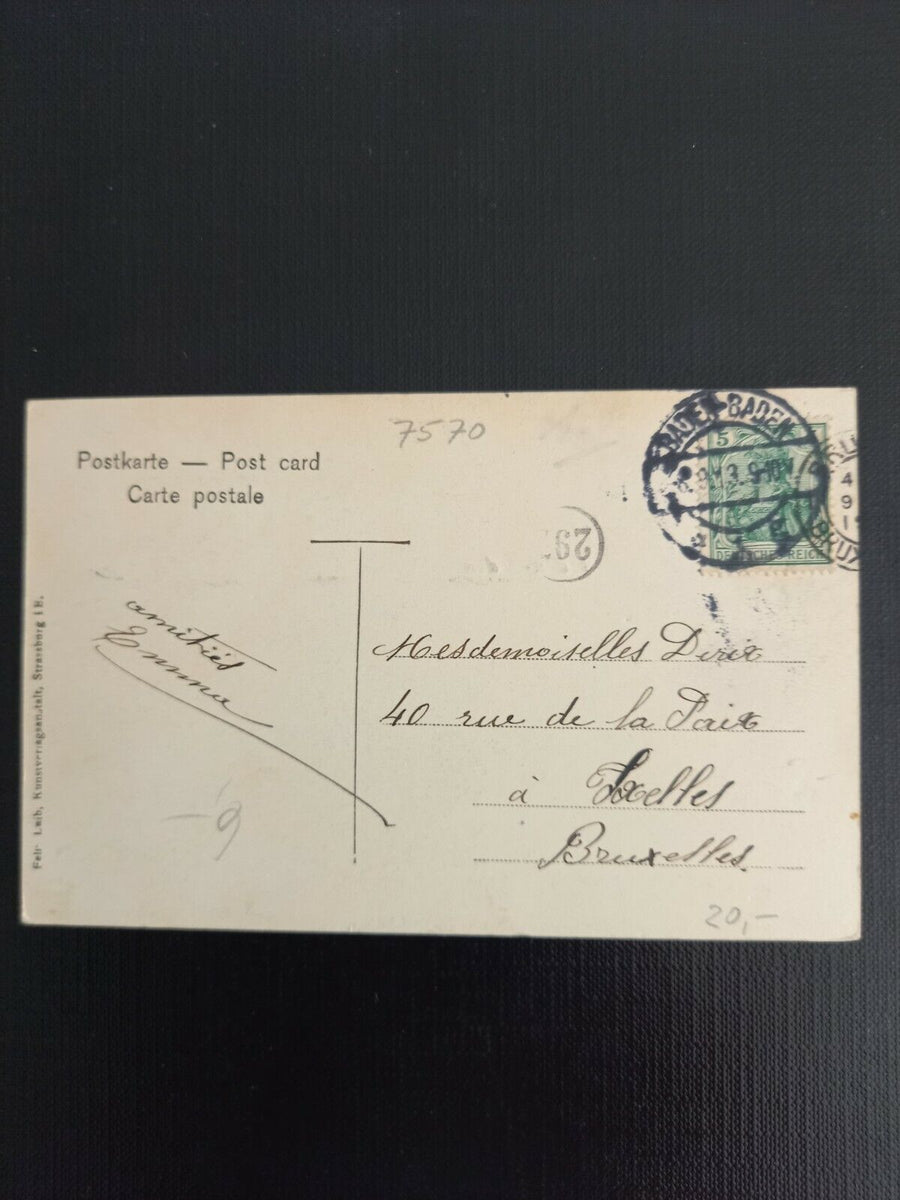 7570
Postkarte — Post card
Carte postale
BADEN-BADEN
5
DEUTSCHES REICH
29
amitiés
Emma
Mesdemoiselles Dirix
40 rue de la Paix
à Ixelles
Bruxelles
20,-
Kunstverlagsanstalt, Strassburg i E.